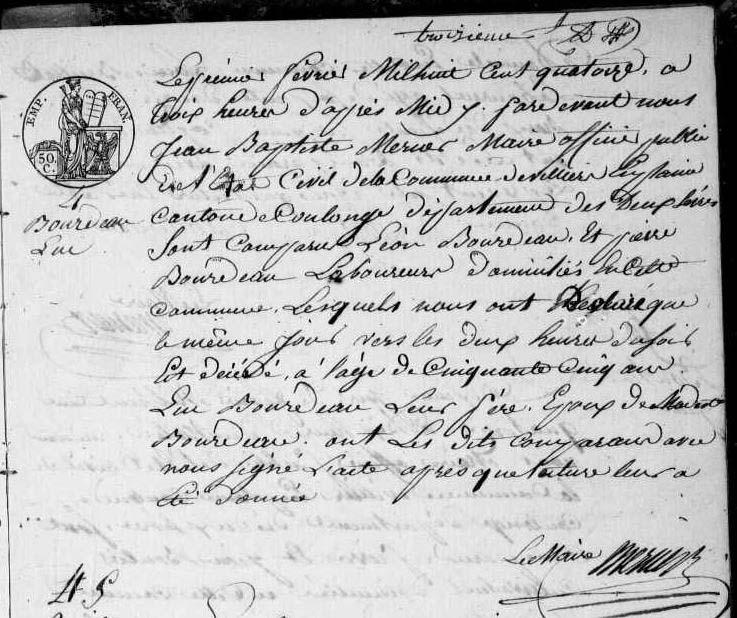 troisieme
EMP. FRAN.
50. C.
4
Bourdeau
Luc
Le premier février Mil huit Cent quatorze, a
trois heures d'après Midy. pardevant nous
Jean Baptiste Mercier Maire officier public
de l'état Civil de la Commune de villiers En plaine
Canton de Coulonge département des Deux Sèvres
Sont Comparus Léon Bourdeau. Et pierre
Bourdeau Laboureurs domiciliés En Cette
Commune. Lesquels nous ont Déclaré que
le même jour vers les deux heures du soir
Est décédé, a l'âge de Cinquante Cinq ans
Luc Bourdeau Leur frère. Epoux de
Bourdeau. ont Les dits Comparans avec
nous Signé L'acte après que lecture leur a
Eté donnée
Le Maire Mercier
4 5